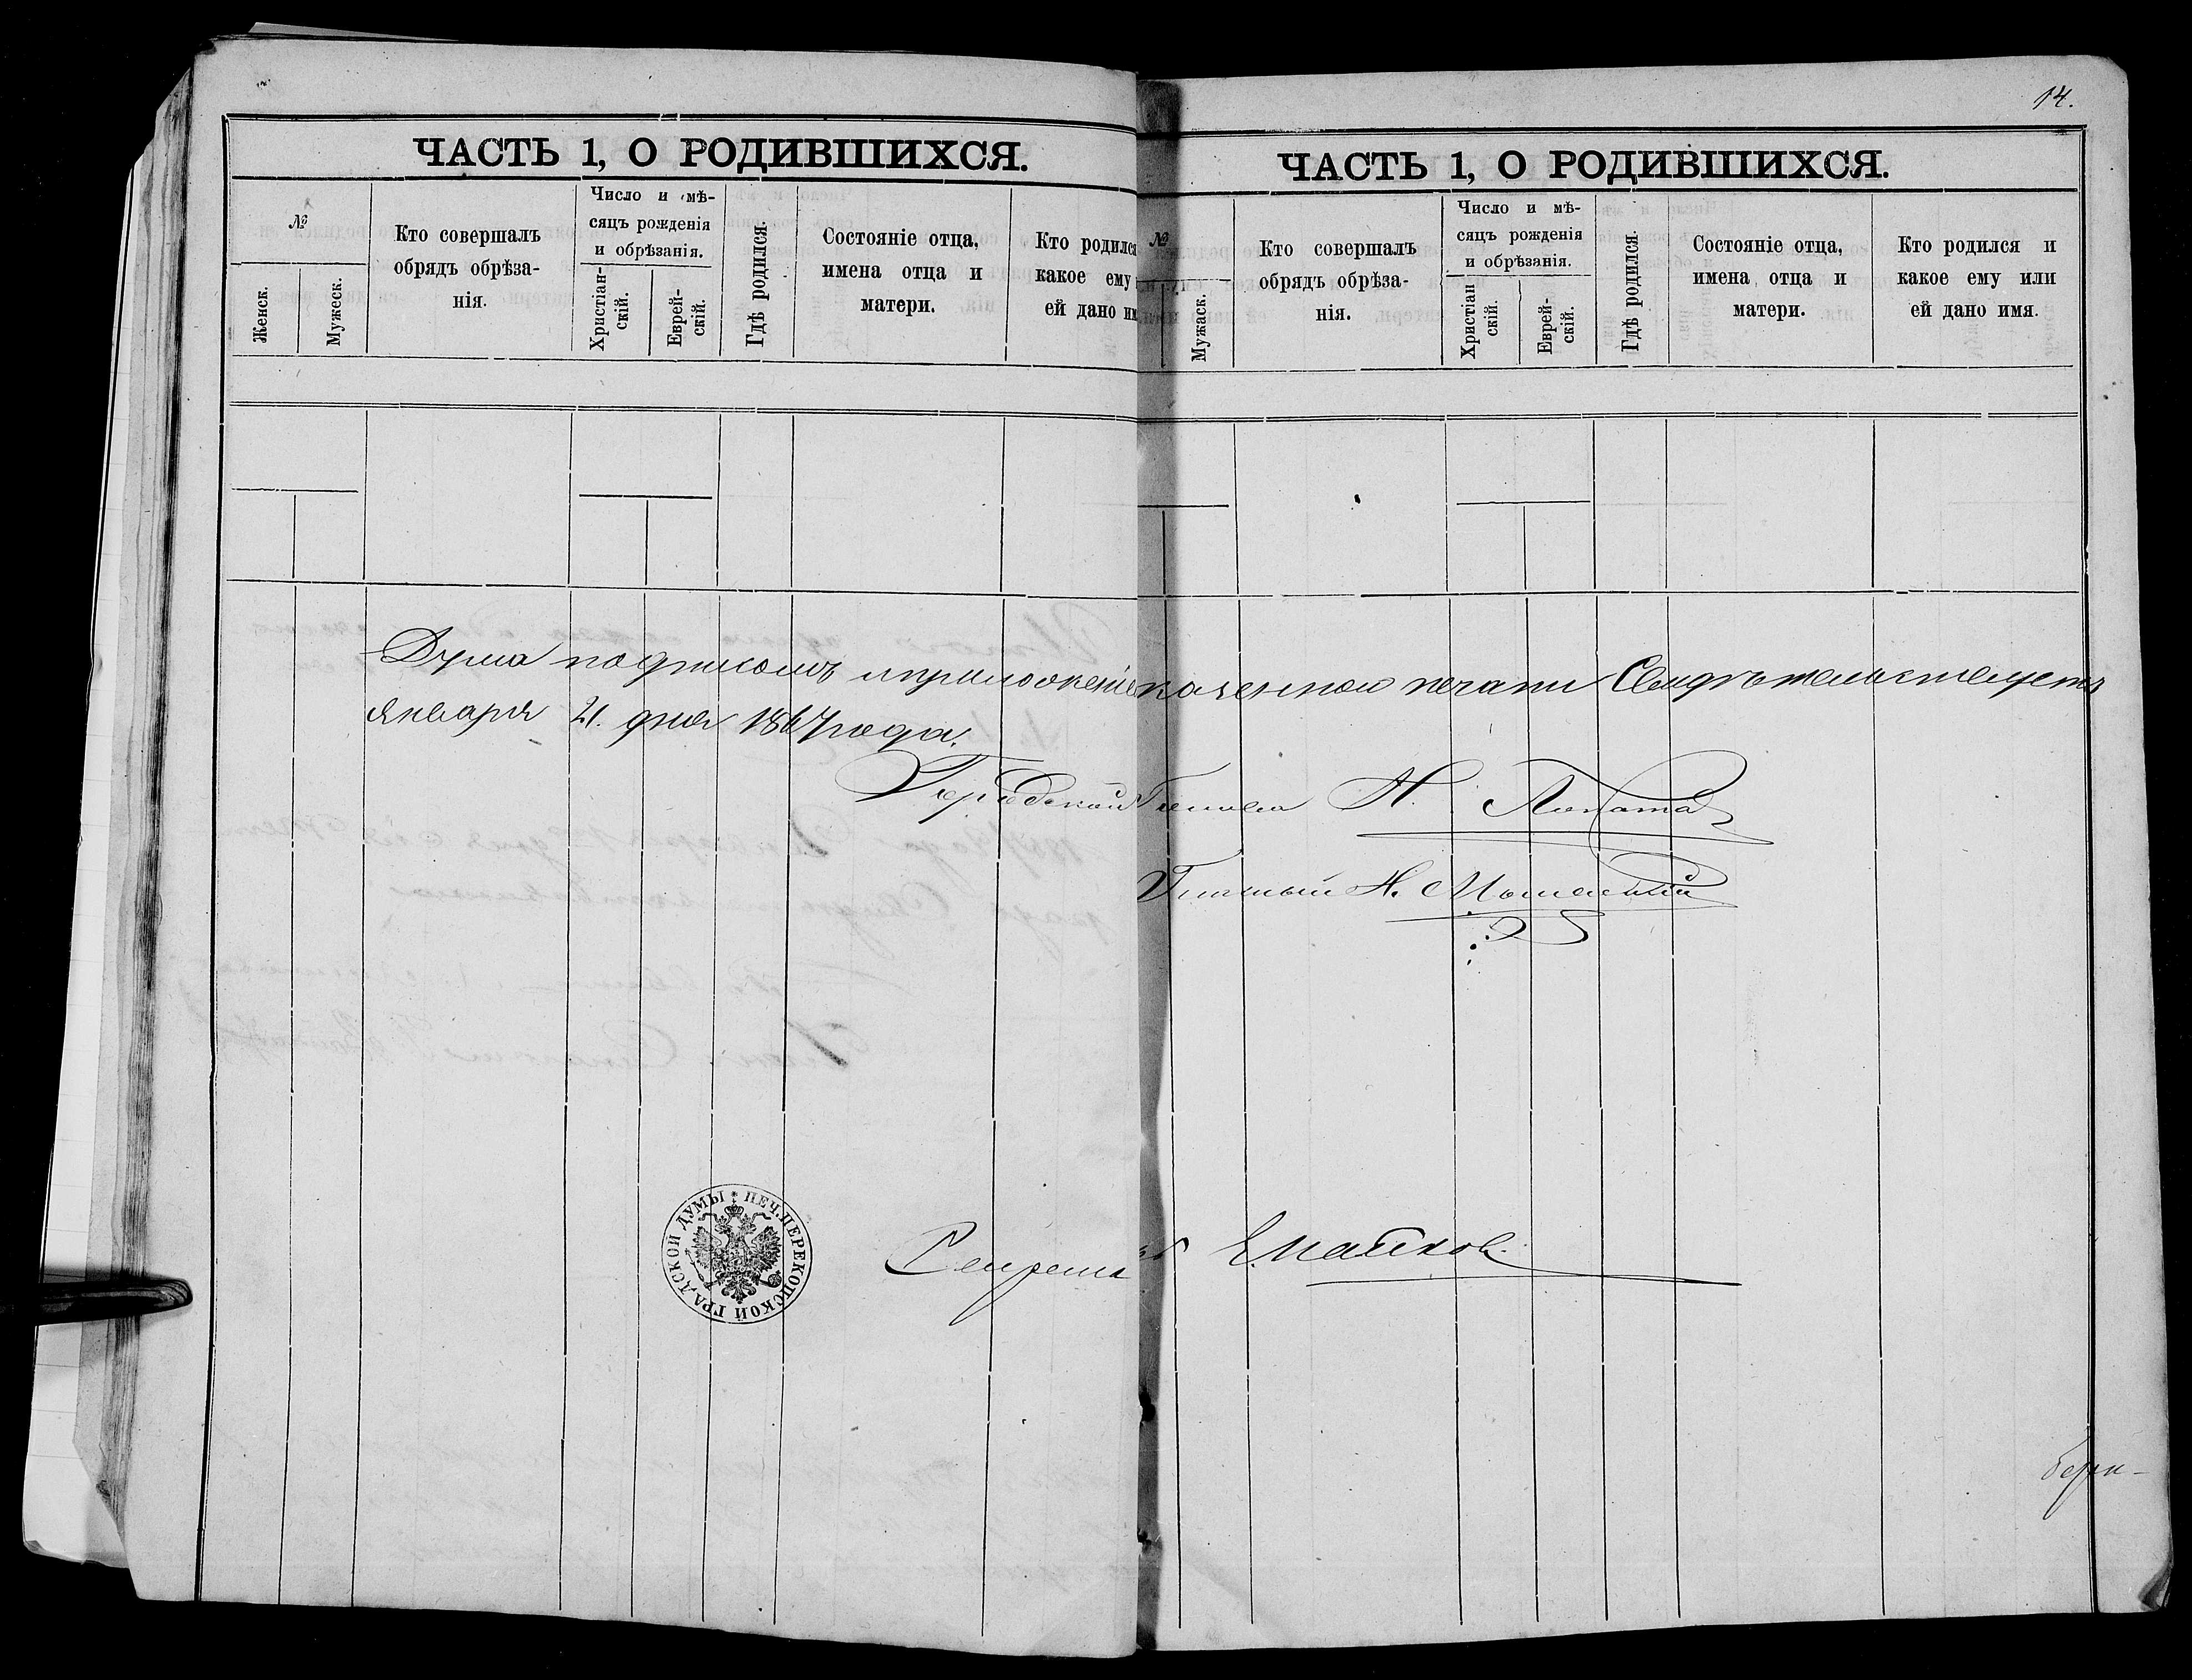 14.
ЧАСТЬ 1, О РОДИВШИХСЯ.
№
Женск.
Мужеск.
Кто совершалъ
обрядъ обрѣза-
нія.
Число и мѣ-
сяцъ рожденія
и обрѣзанія.
Христіан-
скій.
Еврей-
скій.
Гдѣ родился.
Состояніе отца,
имена отца и
матери.
Кто родился
какое ему
ей дано им
ЧАСТЬ 1, О РОДИВШИХСЯ.
№
Мужаск.
Кто совершалъ
обрядъ обрѣза-
нія.
Число и мѣ-
сяцъ рожденія
и обрѣзанія.
Христіан
скій.
Еврей-
скій.
Гдѣ родился.
Состояніе отца,
имена отца и
матери.
Кто родился и
какое ему или
ей дано имя.
Дума подписомъ и приложеніе казенной печати Свидѣтельствуетъ
Января 21. дня 1867 года.
Городской Голова Н.
Гласный Н.
ПЕЧ. ПЕРЕКОПСКОЙ ГРАДСКОЙ ДУМЫ
Секрета